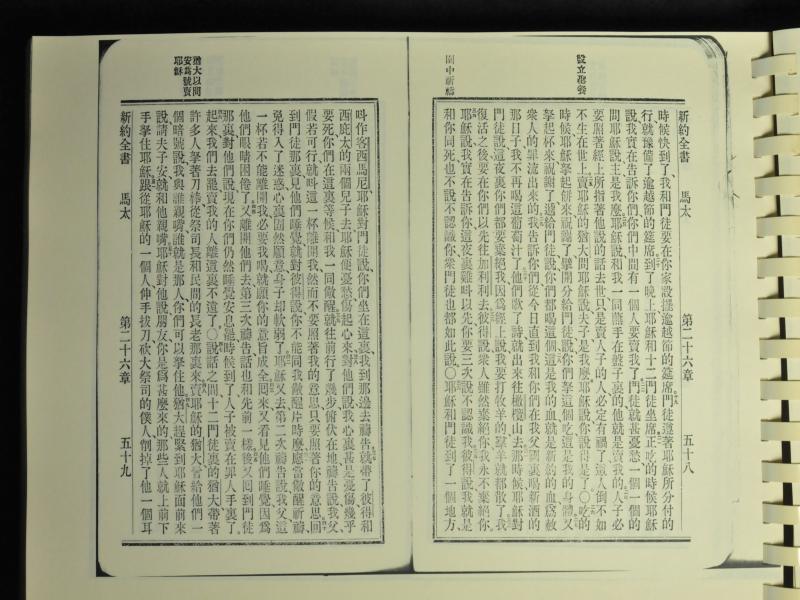 設立聖餐
園中祈禱
新約全書 馬太 第二十六章 五十八
時候快到了我和門徒要在你家設擺逾越節的筵席門徒遵著耶穌所分付的
行就豫備了逾越節的筵席到了晚上耶穌和十二門徒坐席正吃的時候耶穌
說我實在告訴你們你們中間有一個人要賣我了門徒就甚憂愁一個一個的
問耶穌說主是我麼耶穌說和我一同蘸手在盤子裏的他就是賣我的人子必
要照著經上所指著他說的話去世只是賣人子的人必定有禍了這人倒不如
不生在世上賣耶穌的猶大問耶穌說夫子是我麼耶穌說你說得是了○吃的
時候耶穌拏起餅來祝謝了擘開分給門徒說你們拏這個吃這是我的身體又
拏起杯來祝謝了遞給門徒說你們都喝這個這是我的血就是新約的血為赦
衆人的罪流出來的我告訴你們從今日直到我和你們在我父國裏喝新酒的
那日子我不再喝這葡萄汁了他們歌了詩就出來往橄欖山去那時候耶穌對
門徒說這夜裏你們都要棄絕我因為經上說我要打牧羊的羣羊就都散了我
復活之後要在你們以先往加利利去彼得說衆人雖然棄絕你我永不棄絕你
耶穌說我實在告訴你這夜裏雞叫以先你要三次說不認識我彼得說我就是
和你同死也不說不認識你衆門徒也都如此說○耶穌和門徒到了一個地方
猶大以問
安為號賣
耶穌
叫作客西馬尼耶穌對門徒說你們坐在這裏我到那邊去禱告就帶了彼得和
西庇太的兩個兒子去耶穌便憂愁傷起心來對他們說我心裏甚是憂傷幾乎
要死你們在這裏等候和我一同儆醒就往前行了幾步俯伏在地禱告說我父
假若可行就叫這一杯離開我然而不要照著我的意思只要照著你的意思回
到門徒那裏見他們睡覺就對彼得說你不能同我儆醒片時麼應當儆醒祈禱
免得入了迷惑心裏固然願意身子却軟弱了耶穌又去第二次禱告說我父這
一杯若不能離開我必要我喝就願你的意旨成全回來又看見他們睡覺因為
他們眼睛困倦了又離開他們去第三次禱告話也和先前一樣後又回到門徒
那裏對他們說現在你們仍然睡覺安息罷時候到了人子被賣在罪人手裏了
起來我們去罷賣我的人離這裏不遠了○說話之間十二門徒裏的猶大帶著
許多人拏著刀棒從祭司長和民間的長老那裏來賣耶穌的猶大曾給他們一
個暗號說我與誰親嘴誰就是那人你們可以拏住他猶大趕緊到耶穌面前來
說請夫子安就和他親嘴耶穌對他說朋友你是為甚麼來的那些人就上前下
手拏住耶穌跟從耶穌的一個人伸手拔刀砍大祭司的僕人削掉了他一個耳
新約全書 馬太 第二十六章 五十九